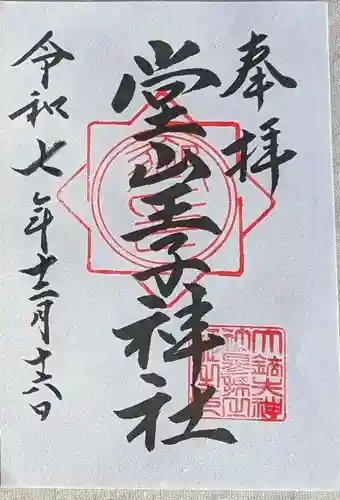 奉拝
堂山王子神社
令和七年十二月十六日